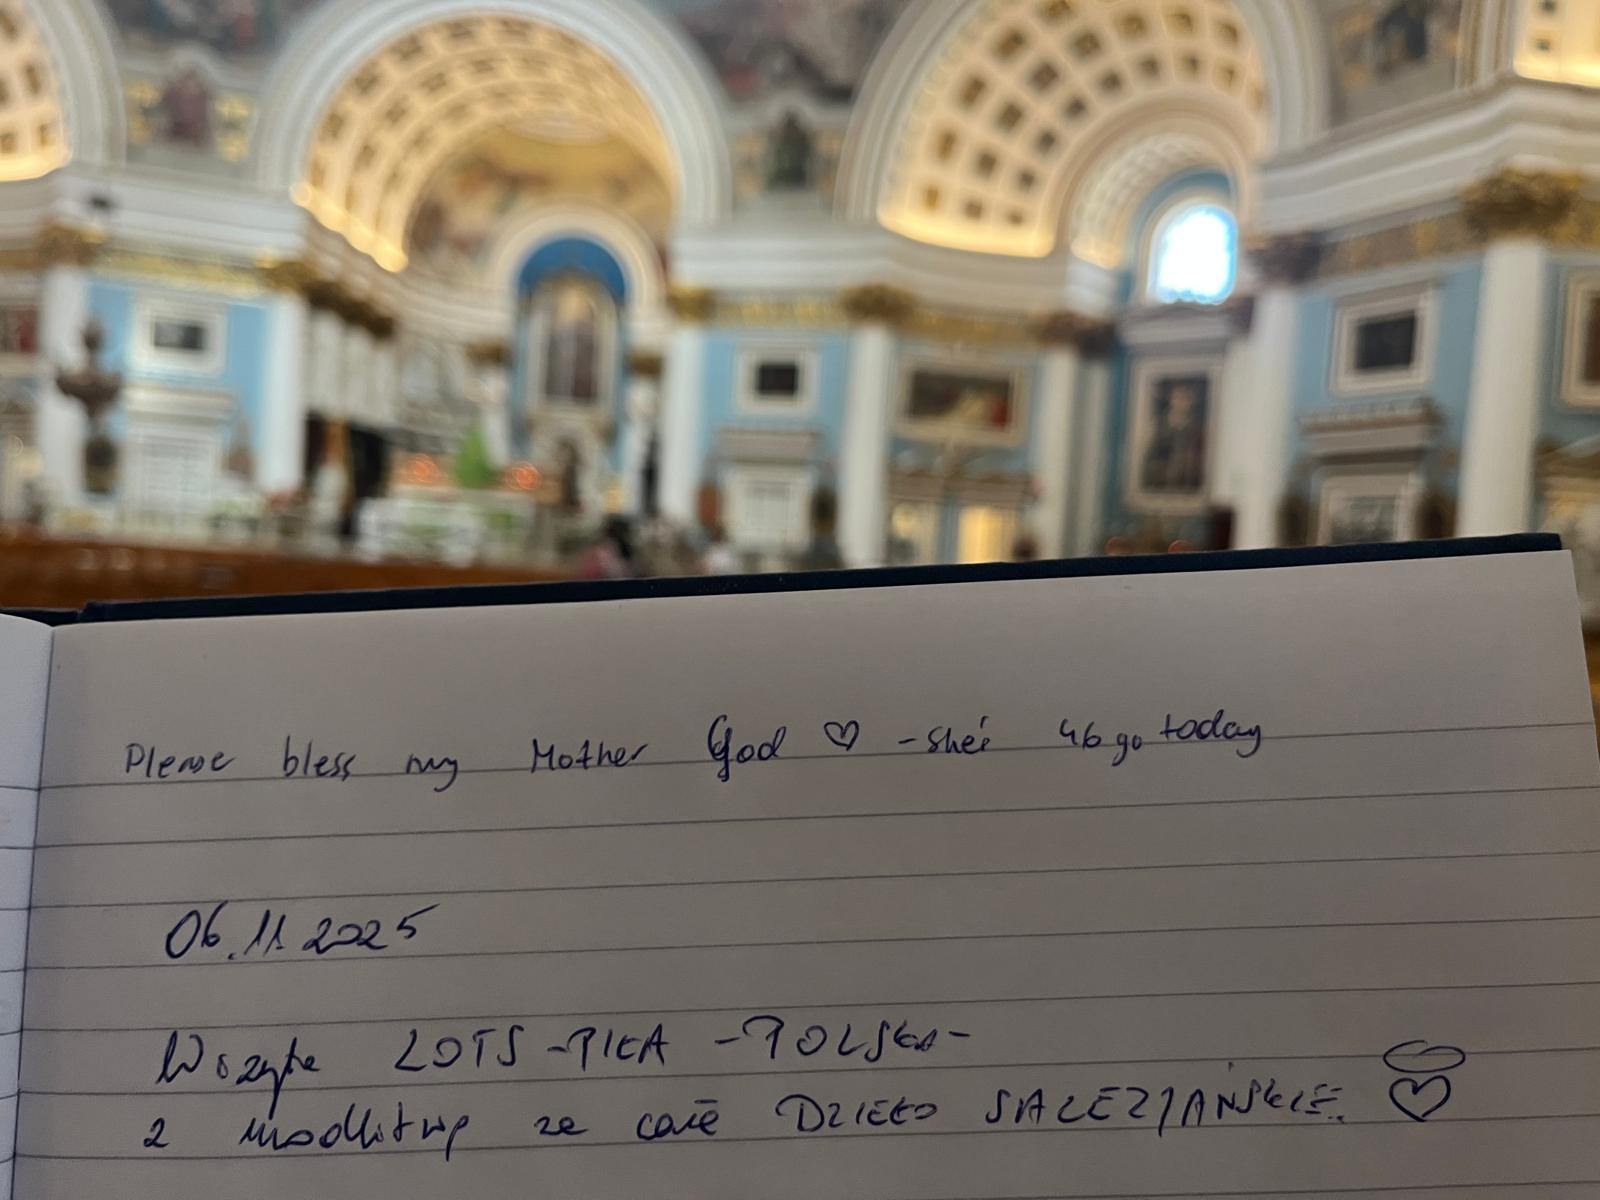 Please bless my Mother God ♡ - she's 46 yo today
06.11.2025
LOTS - PIŁA - POLSKA -
z modlitwą za całe DZIEŁO SALEZJAŃSKIE ♡